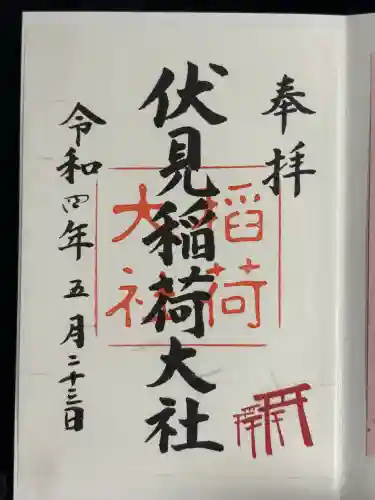 奉拝
伏見稲荷大社
稲荷
大社
令和四年五月二十三日